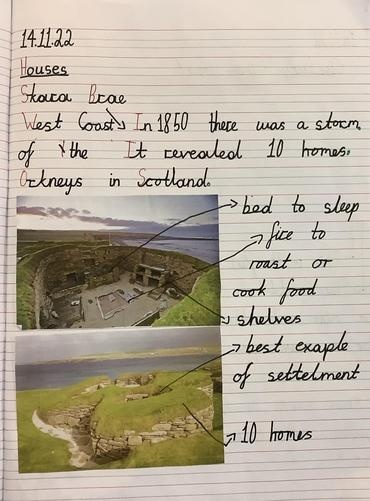 14.11.22
Houses
Skara Brae
West Coast In 1850 there was a storm.
of the It revealed 10 homes.
Orkneys in Scotland.
bed to sleep
fire to
roast or
cook food
shelves
best exaple
of settelment
10 homes